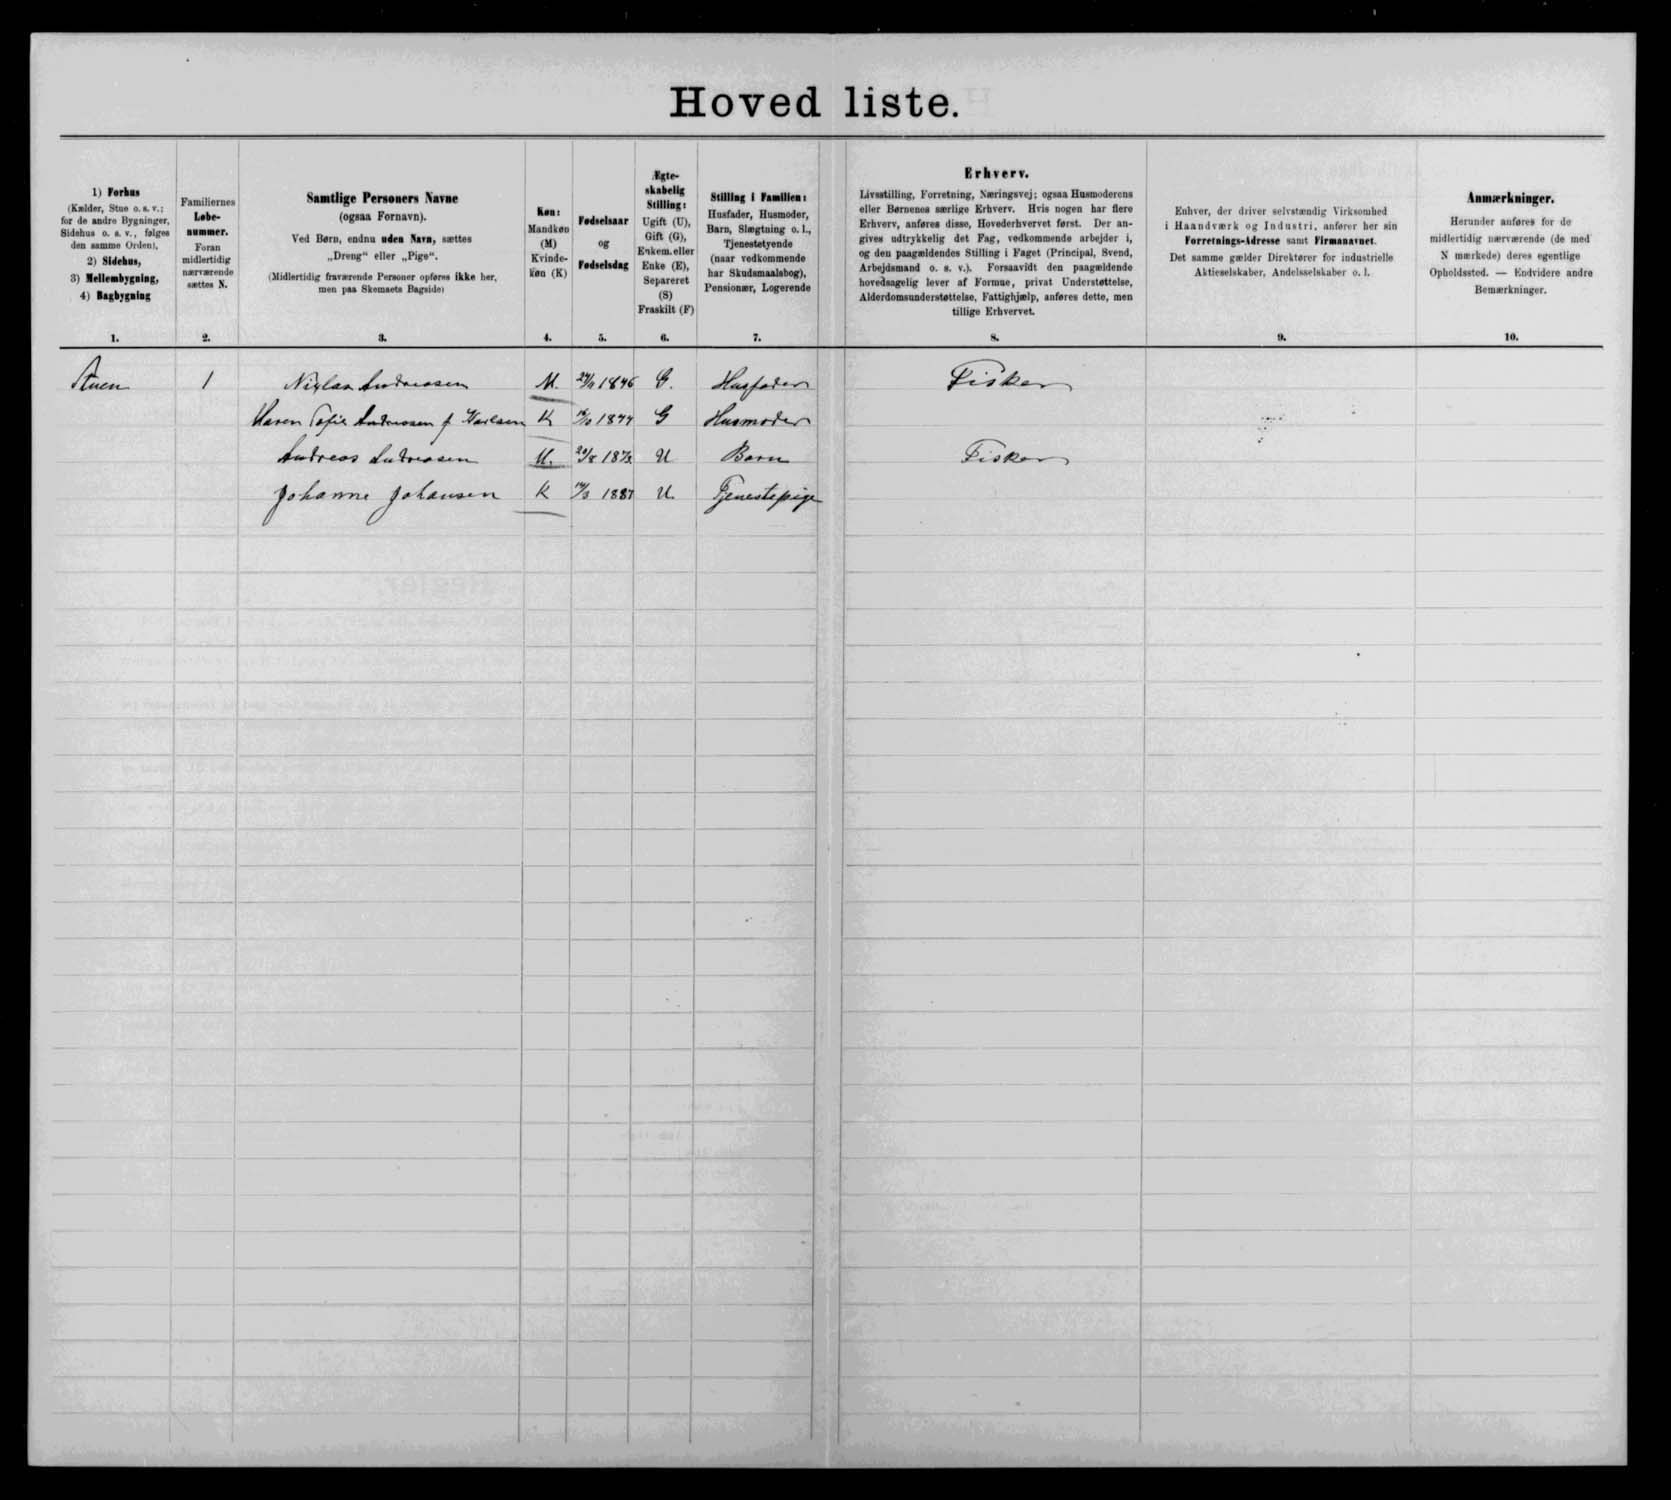 Hoved liste.
1) Forhus
(Kælder, Stue o. s. v.;
for de andre Bygninger,
Sidehus o. s. v., følges
den samme Orden),
2) Sidehus,
3) Mellembygning,
4) Bagbygning
1.
Familiernes
Løbe-
nummer.
Foran
midlertidig
nærværende
sættes N.
2.
Samtlige Personers Navne
(ogsaa Fornavn).
Ved Børn, endnu uden Navn, sættes
„Dreng“ eller „Pige“.
(Midlertidig fraværende Personer opføres ikke her,
men paa Skemaets Bagside)
3.
Køn:
Mandkøn
(M)
Kvinde-
køn (K)
4.
Fødselsaar
og
Fødselsdag
5.
Ægte-
skabelig
Stilling:
Ugift (U),
Gift (G),
Enkem. eller
Enke (E),
Separeret
(S)
Fraskilt (F)
6.
Stilling i Familien:
Husfader, Husmoder,
Barn, Slægtning o. l.,
Tjenestetyende
(naar vedkommende
har Skudsmaalsbog),
Pensionær, Logerende
7.
Erhverv.
Livsstilling, Forretning, Næringsvej; ogsaa Husmoderens
eller Børnenes særlige Erhverv. Hvis nogen har flere
Erhverv, anføres disse, Hovederhvervet først. Der an-
gives udtrykkelig det Fag, vedkommende arbejder i,
og den paagældendes Stilling i Faget (Principal, Svend,
Arbejdsmand o. s. v.). Forsaavidt den paagældende
hovedsagelig lever af Formue, privat Understøttelse,
Alderdomsunderstøttelse, Fattighjælp, anføres dette, men
tillige Erhvervet.
8.
Enhver, der driver selvstændig Virksomhed
i Haandværk og Industri, anfører her sin
Forretnings-Adresse samt Firmanavnet.
Det samme gælder Direktører for industrielle
Aktieselskaber, Andelsselskaber o. l.
9.
Anmærkninger.
Herunder anføres for de
midlertidig nærværende (de med
N mærkede) deres egentlige
Opholdssted. — Endvidere andre
Bemærkninger.
10.
Stuen 1 Andreasen M. 1846 G. Husfader Fisker
Maren Sofie Andreasen f. K 1844 G Husmoder
Andreas Andreasen M. 1873 U Barn Fisker
Johanne Johansen K 1887 U Tjenestepige